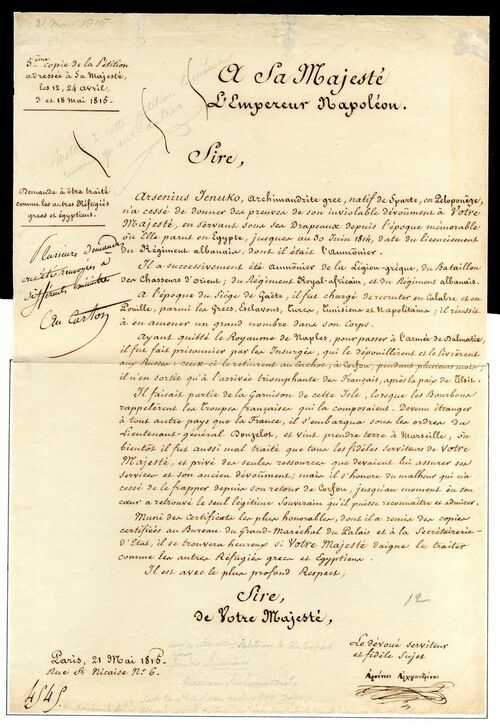 21 Mai 1815
5ème copie de la Pétition
adressée à Sa Majesté,
les 12, 24 avril,
3 et 18 mai 1815.
A Sa Majesté
L'Empereur Napoléon.
Sire,
Demande à être traité
comme les autres Réfugiés
grecs et égyptiens.
Plusieurs demandes
renvoyées à
différents ministres
Au Carton
Arsenius Jenuko, Archimandrite grec, natif de Sparte, en Péloponèze,
n'a cessé de donner des preuves de son inviolable dévoûment à Votre
Majesté, en servant sous ses Drapeaux depuis l'époque mémorable
où Elle parut en Egypte, jusques au 30 Juin 1814, date du licenciement
du Régiment albanais, dont il était l'Aumônier.
Il a successivement été Aumônier de la Légion-grèque, du Bataillon
des Chasseurs d'orient, du Régiment Royal-africain, et du Régiment albanais.
A l'époque du Siège de Gaëte, il fut chargé de recruter en Calabre et en
Pouille, parmi les Grecs, Esclavons, Turcs, Tunisiens et Napolitains; il réussit
à en amener un grand nombre dans son Corps.
Ayant quitté le Royaume de Naples, pour passer à l'armée de Dalmatie,
il fut fait prisonnier par les Insurgés, qui le dépouillèrent et le livrèrent
aux Russes: ceux-ci le retinrent au cachot, à Corfou, pendant plusieurs mois;
il n'en sortit qu'à l'arrivée triomphante des Français, après la paix de Tilsit.
Il faisait partie de la Garnison de cette Isle, lorsque les Bourbons
rappelèrent les Troupes françaises qui la composaient. Devenu étranger
à tout autre pays que la France, il s'embarqua sous les ordres du
Lieutenant-général Donzelot, et vint prendre terre à Marseille, où
bientôt il fut aussi mal traité que tous les fidèles Serviteurs de Votre
Majesté, et privé des seules ressources que devaient lui assurer ses
services et son ancien dévoûment; mais il s'honore du malheur qui n'a
cessé de le frapper depuis son retour de Corfou, jusqu'au moment où son
cœur a retrouvé le seul légitime Souverain qu'il puisse reconnaître et admirer.
Muni des Certificats les plus honorables, dont il a remis des copies
certifiées au Bureau du Grand-Maréchal du Palais et à la Secrétairerie-
d'Etat, il se trouvera heureux si Votre Majesté daigne le traiter
comme les autres Réfugiés grecs et Egyptiens.
Il est avec le plus profond Respect,
Sire,
12
de Votre Majesté,
Le dévoué serviteur
et fidèle Sujet
Paris, 21 Mai 1815.
Rue St Nicaise No 6.
4545.